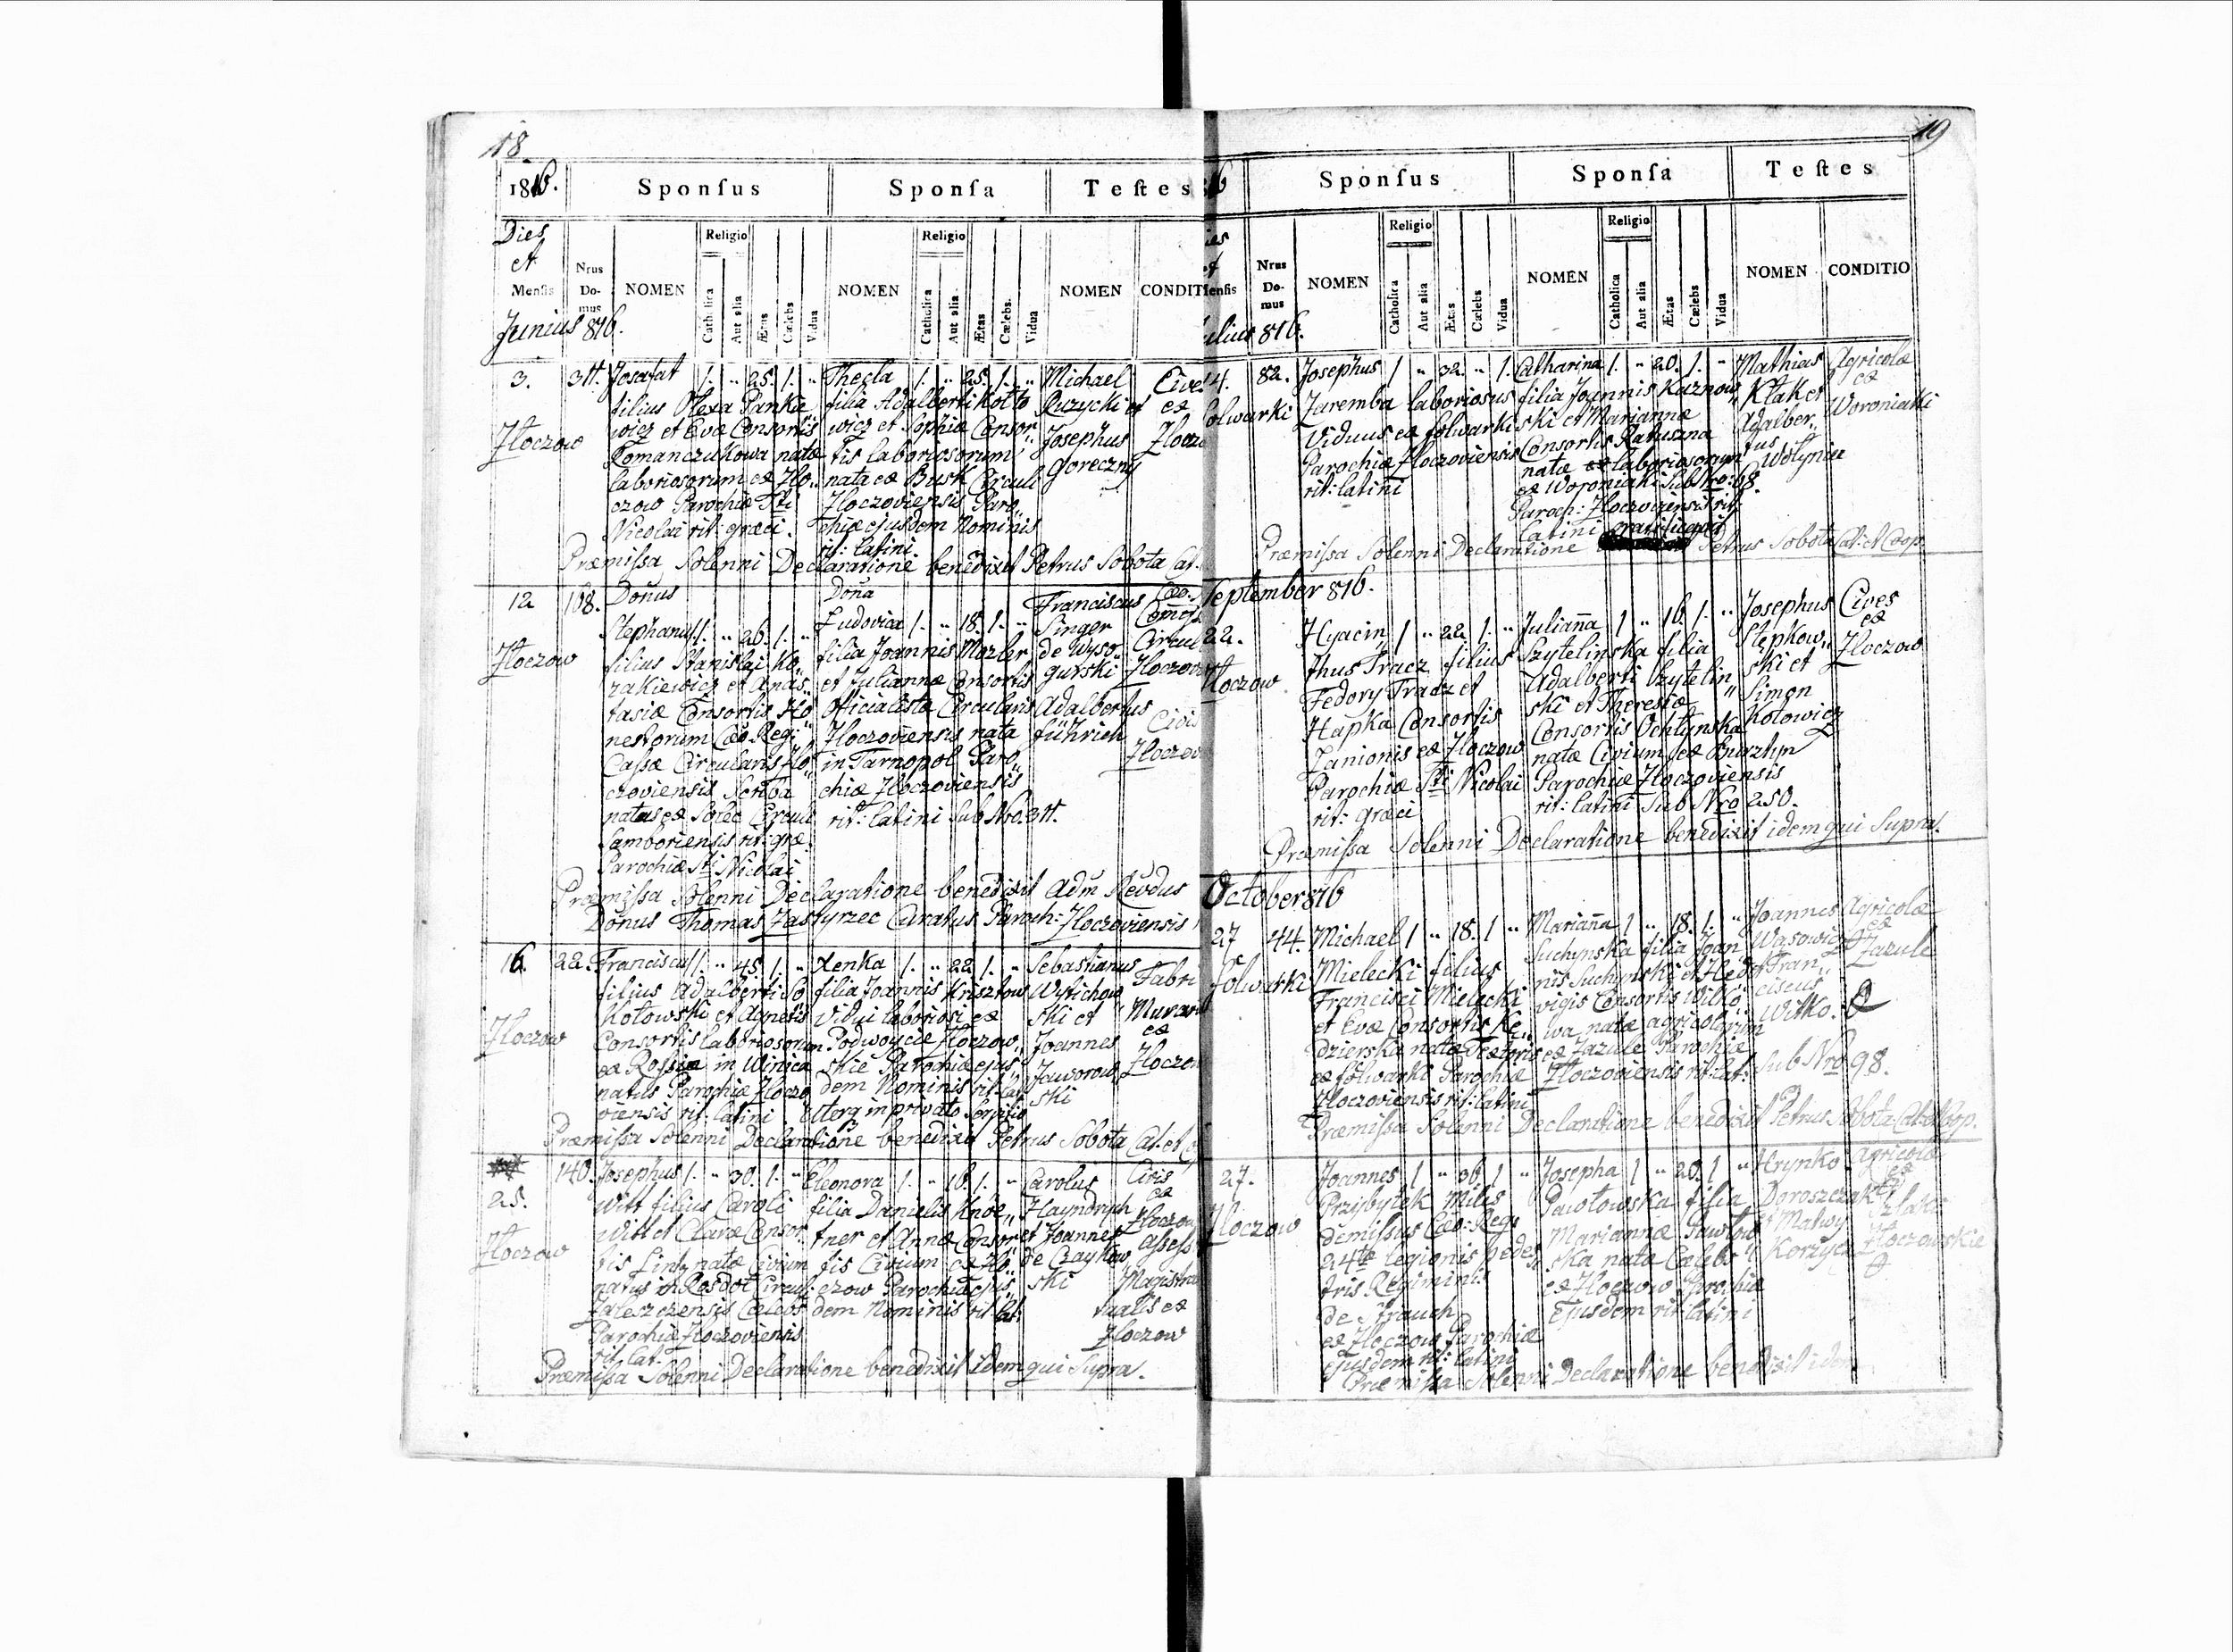 18
1816.
Sponſus
Sponſa
Teſtes
Dies et Menſis
Nrus Do- mus
NOMEN
Religio
Catholica
Aut alia
Ætas
Cælebs
Vidua
NOMEN
Religio
Catholica
Aut alia
Ætas
Cælebs.
Vidua
NOMEN
CONDIT
Junius 816.
3.
Złoczow
Josafat 1. " 25. 1. "
filius Olexa Pankie
wicz et Evæ Consortis
Romanczukowa natæ
laboriosorum ex Zło„
czow Parochiæ Sti
Nicolai rit: græci.
Thecla 1. " 25. 1. "
filia Adalberti Kotto
wicz et Sophiæ Consor„
tis laboriosorum
nata ex Busk Circuli
Złoczoviensis Paro„
chiæ ejusdem Nominis
rit: latini.
Michael
Ruzycki et
Josephus
Goreczny
Cives
ex
Złocz
Præmiſsa Solenni Declaratione benedixit Petrus Sobota Cat.
12
108.
Złoczow
Doñus
Stephanus 1. " 26. 1. "
filius Stanislai Ko„
zakiewicz et Anas„
tasiæ Consortis Ho„
nestorum Cæo Regi„
Caſsæ Circularis Zło„
czoviensis Scriba
natus ex Solec Circuli
Samboriensis rit: græ:
Parochiæ Sti Nicolai
Doña
Ludovica 1. " 18. 1. "
filia Joannis Mozler
et Juliannæ Consortis
Officialistæ Circularis
Złoczoviensis nata
in Tarnopol Paro„
chiæ Złoczoviensis
rit: latini Sub Nro.
Franciscus
Singer
de Wyso„
gurski
Adalbertus
Führich
Circul
Złoczow
Civis
Złoczow
Præmiſsa Solenni Declaratione benedixit Adm Revdus
Doñus Thomas Zastyrzec Curatus Paroch: Złoczoviensis
16.
22.
Złoczow
Franciscus 1. " 45. 1. "
filius Adalberti So
kołowski et Agnetis
Consortis laboriosorum
ex Roſsiæ in Winica
natus Parochiæ Złoczo
viensis rit: latini
Xenka 1. " 22. 1. "
filia Joannis Krisztow
Vidui laboriosi ex
Podwoycie Złoczow„
skie Parochiæ ejus„
dem Nominis rit: lat:
Uterq in privato Servitio
Sebastianus
Wytichow
ski et
Joannes
Jaworow
ski
Fabri
Murar
ex
Złoczow
Præmiſsa Solenni Declaratione benedixit Petrus Sobota Cat. et
25.
140.
Złoczow
Josephus 1. " 30. 1. "
Witt filius Caroli
Witt et Claræ Consor„
tis Lintz natæ Civium
natus in Rosdot Circuli
Zaleszczensis Cœlebs
Parochiæ Złoczoviensis
rit: lat.
Eleonora 1. " 16. 1. "
filia Danielis Knöe„
tner et Annæ Consor„
tis Civium ex Zło„
czow Parochiæ ejus„
dem Nominis rit: lat:
Carolus
Hayndrych
et Joannes
de Czaykow
ski
Civis
ex
Złoczow
Aſseſs
Magistra
tualis ex
Złoczow
Præmiſsa Solenni Declaratione benedixit Idem qui Supra.
19
Sponſus
Sponſa
Teſtes
Nrus Do- mus
NOMEN
Religio
Catholica
Aut alia
Ætas
Cælebs
Vidua
NOMEN
Religio
Catholica
Aut alia
Ætas
Cælebs
Vidua
NOMEN
CONDITIO
ulius 816.
4.
82.
olwarki
Josephus 1 " 32. " 1.
Zaremba laboriosus
Viduus ex folwarki
Parochiæ Złoczoviensis
rit: latini
Catharina 1. " 20. 1. "
filia Joannis Kaznow„
ski et Mariannæ
Consortis Ratuszna
natæ ex laboriosorum
ex Woroniaki Sub Nro: 68.
Paroch: Złoczoviensis rit:
Latini
Mathias
Kłak et
Adalber„
tus
Wołyniec
Agricolæ
ex
Woroniaki
Præmiſsa Solenni Declaratione Petrus Sobota Cat: et Coop.
September 816.
22.
Złoczow
Hyacin„ 1 " 22. 1. "
thus Tracz filius
Fedory Tracz et
Hapka Consortis
Lanionis ex Złoczow
Parochiæ Sti Nicolai
rit: græci
Julianna 1 " 16. 1. "
Szytelinska filia
Adalberti Szytelin„
ski et Theresiæ
Consortis Ochtynska
natæ Civium ex Burztyn
Parochiæ Złoczoviensis
rit: latini Sub Nro 250.
Josephus
Stępkow„
ski et
Simon
Kotowicz
Cives
ex
Złoczow
Præmiſsa Solenni Declaratione benedixit idem qui Supra.
October 816
27
44.
folwarki
Michael 1 " 18. 1 "
Mielecki filius
Francisci Mielecki
et Evæ Consortis Kę„
dzierska natæ
ex folwarki Parochiæ
Złoczoviensis rit: latini
Marianna 1 " 18. 1. "
Suchynska filia Joan„
nis Suchynski et Hed
vigis Consortis Witko„
wa natæ agricolarum
ex Zazule Parochiæ
Złoczoviensis rit: lat: Sub Nro 98.
Joannes
Wąsowicz
et Fran„
ciscus
Witko.
Agricolæ
ex
Zazule
Præmiſsa Solenni Declaratione benedixit Petrus Sobota Cat: et Coop.
27.
Złoczow
Joannes 1 " 36. 1 "
Przybytek Miles
demiſsus Cæo: Regi
24tæ legionis pedes„
tris Regiminis
de Strauch
ex Złoczow Parochiæ
ejusdem rit: latini
Josepha 1 " 20. 1 "
Pawłowska filia
Mariannæ Pawłow„
ska natæ Cœlebs
ex Złoczow Parochiæ
Ejusdem rit: latini
Hrynko
Doroszczak
Matwy
Korzyc
Agricolæ
ex
Szlaki
Złoczowskie
Præmiſsa Solenni Declaratione benedixit idem